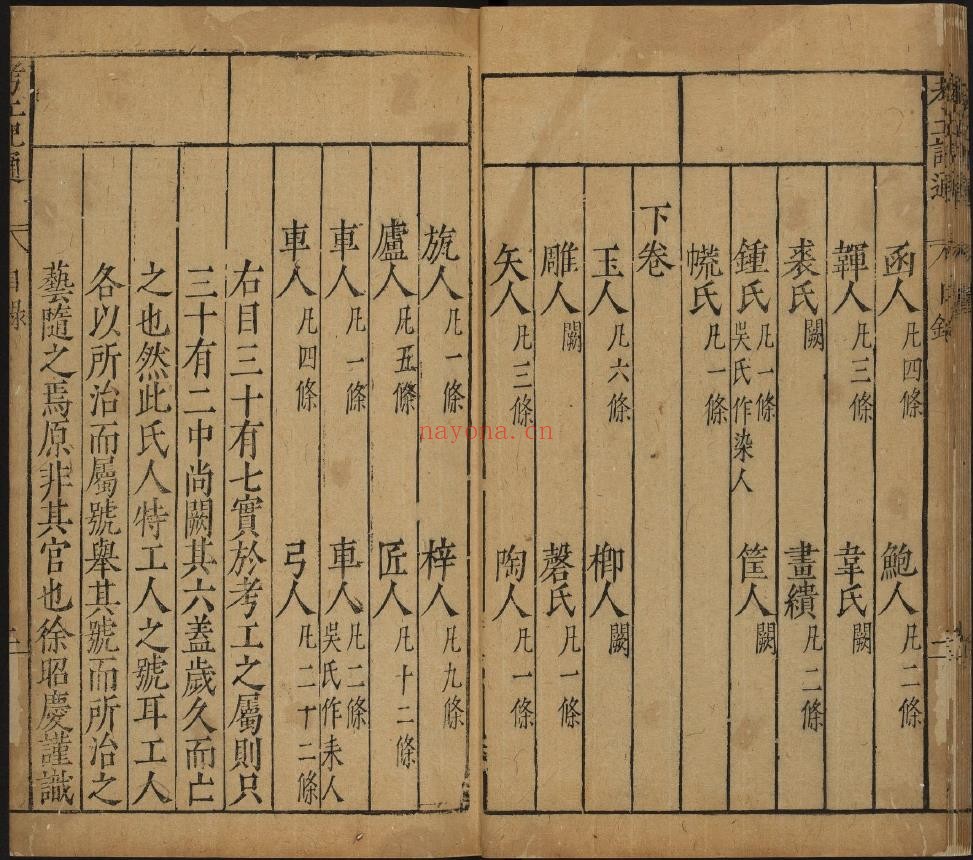 考工記通 目錄 二
函人 凡四條 鮑人 凡二條
韗人 凡三條 韋氏 闕
裘氏 闕 畫繢 凡二條
鍾氏 凡一條 吳氏作染人 筐人 闕
㡛氏 凡一條
下卷
玉人 凡六條 楖人 闕
雕人 闕 磬氏 凡一條
矢人 凡三條 陶人 凡一條
旊人 凡一條 梓人 凡九條
廬人 凡五條 匠人 凡十二條
車人 凡一條 車人 凡二條 吳氏作耒人
車人 凡四條 弓人 凡二十二條
右目三十有七實於考工之屬則只
三十有二中尚闕其六蓋歲久而亡
之也然此氏人特工人之號耳工人
各以所治而屬號舉其號而所治之
藝隨之焉原非其官也徐昭慶謹識
考工記通 目錄 二
nayona.cn